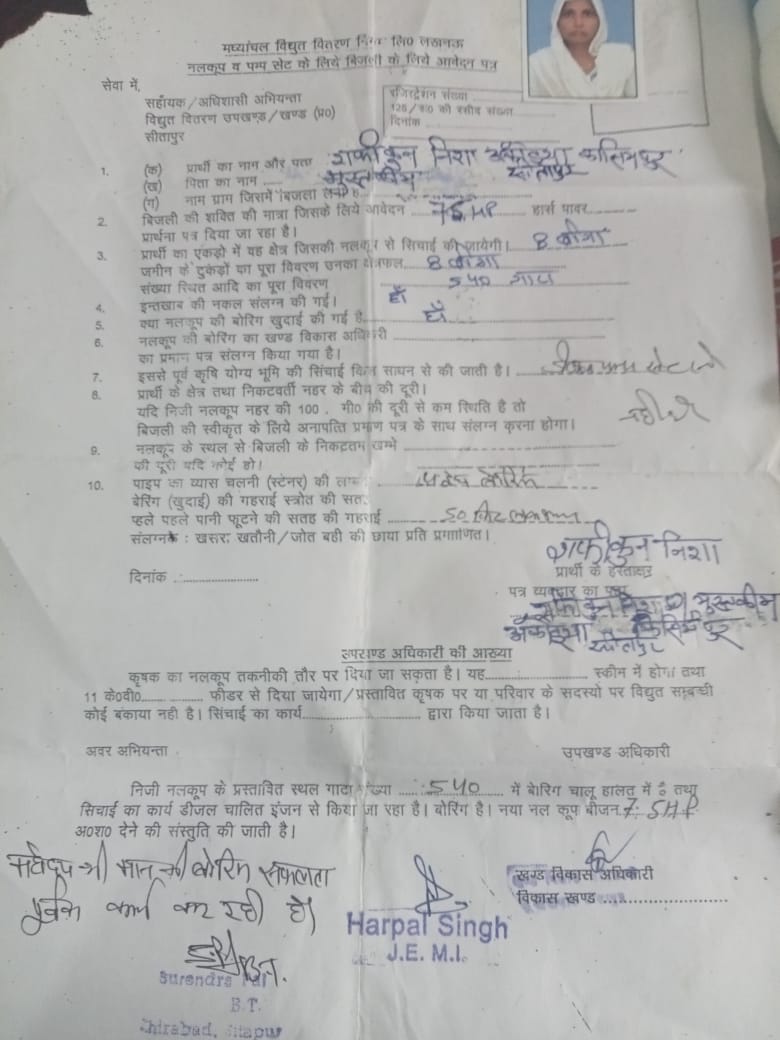 मध्यांचल विद्युत वितरण निगम लि० लखनऊ
नलकूप व पम्प सेट के लिये बिजली के लिये आवेदन पत्र
सेवा में,
सहाँयक/अधिशासी अभियन्ता
विद्युत वितरण उपखण्ड/खण्ड (प्र०)
सीतापुर
रजिस्ट्रेशन संख्या
की रसीद संख्या
दिनांक
1. (क) प्रार्थी का नाम और पता शफीकुन निशा अकोइया कासिमपुर
सीतापुर
(ख) पिता का नाम मुस्तकीम
(ग) नाम ग्राम जिसमें बिजली लेनी है
2. बिजली की शक्ति की मात्रा जिसके लिये आवेदन 7.5 HP हार्स पावर
प्रार्थना पत्र दिया जा रहा है।
3. प्रार्थी का एकड़ो में वह क्षेत्र जिसकी नलकूप से सिचाई की जायेगी। 8 बीघा
जमीन के टुकड़ों का पूरा विवरण उनका क्षेत्रफल 8 बीघा
संख्या स्थित आदि का पूरा विवरण 540 गाटा
4. इन्तखाब की नकल संलग्न की गई। हाँ
5. क्या नलकूप की बोरिंग खुदाई की गई है हाँ
6. नलकूप की बोरिंग का खण्ड विकास अधिकारी
का प्रमाण पत्र संलग्न किया गया है।
7. इससे पूर्व कृषि योग्य भूमि की सिंचाई किस साधन से की जाती है।
8. प्रार्थी के क्षेत्र तथा निकटवर्ती नहर के बीच की दूरी।
यदि निजी नलकूप नहर की 100 . मी० की दूरी से कम स्थिति है तो
बिजली की स्वीकृत के लिये अनापत्ति प्रमाण पत्र के साथ संलग्न करना होगा।
9. नलकूप के स्थल से बिजली के निकटतम खम्भे
की दूरी यदि कोई हो।
10. पाइप का व्यास चलनी (स्टेनर) की बोरिंग
बेरिंग (खुदाई) की गहराई स्त्रोत की सतह
प्हले पहले पानी फूटने की सतह की गहराई 50 फिट
संलग्नक : खसरा खतौनी/जोत बही की छाया प्रति प्रमाणित।
शफीकुन निशा
प्रार्थी के हस्ताक्षर
दिनांक :
पत्र व्यवहार का पता
शफीकुन निशा मुस्तकीम
अकोइया कासिमपुर
सीतापुर
उपखण्ड अधिकारी की आख्या
कृषक का नलकूप तकनीकी तौर पर दिया जा सकता है। यह स्कीम में होगा तथा
11 के०वी० फीडर से दिया जायेगा/प्रस्तावित कृषक पर या परिवार के सदस्यो पर विद्युत सम्बन्धी
कोई बकाया नही है। सिंचाई का कार्य द्वारा किया जाता है।
अवर अभियन्ता उपखण्ड अधिकारी
निजी नलकूप के प्रस्तावित स्थल गाटा संख्या 540 में बोरिंग चालू हालत में है तथा
सिचाई का कार्य डीजल चालित इंजन से किया जा रहा है। बोरिंग है। नया नल कूप बीजन 7.5HP
अ०श० देने की संस्तुति की जाती है।
श्री मान जी बोरिंग सफलता
पूर्वक कार्य कर रही है।
Harpal Singh
J.E. M.I.
खण्ड विकास अधिकारी
विकास खण्ड
Surendra Pal
B.T.